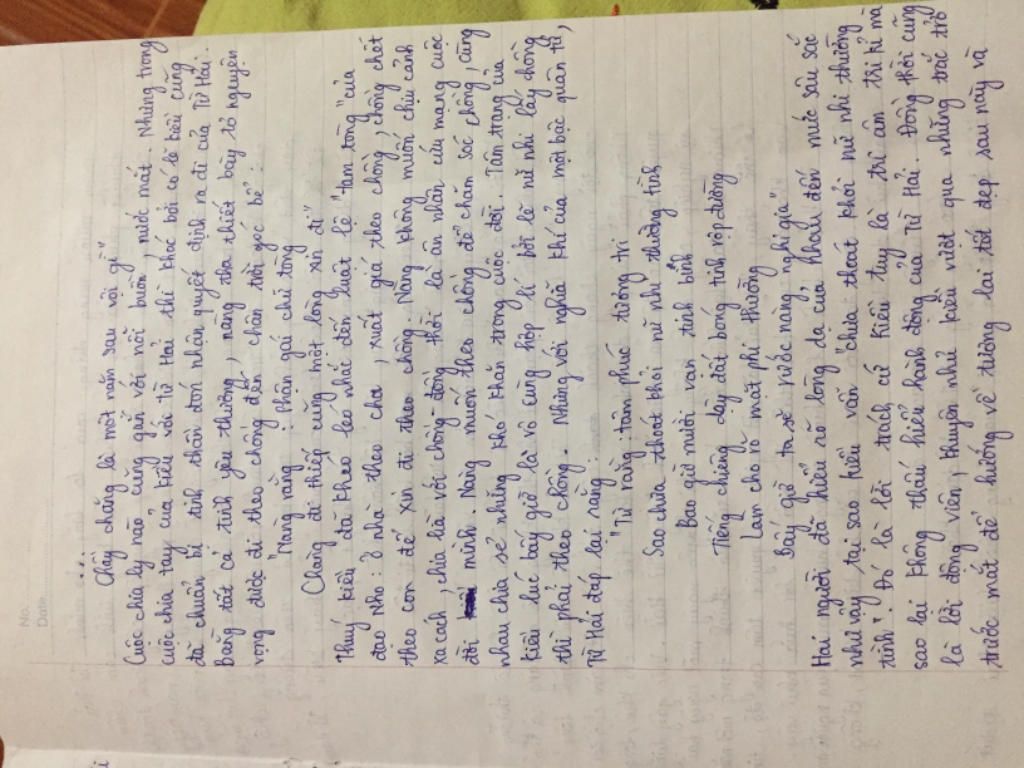 No.
Date
...
Chầy chăng là một năm sau vội gì"
Cuộc chia ly nào cũng gắn với nỗi buồn, nước mắt. Nhưng trong
cuộc chia tay của Kiều với Từ Hải thì khác bởi có lẽ Kiều cũng
đã chuẩn bị tinh thần đón nhận quyết định ra đi của Từ Hải.
Bằng tất cả tình yêu thương, nàng tha thiết bày tỏ nguyện
vọng được đi theo chồng đến chân trời góc bể":
"Nàng rằng: Phận gái chữ tòng
Chàng đi thiếp cũng một lòng xin đi"
Thuý Kiều đã khéo léo nhắc đến luật lệ "tam tòng" của
đạo Nho: ở nhà theo cha, xuất giá theo chồng, chồng chết
theo con để xin đi theo chồng. Nàng không muốn chịu cảnh
xa cách, chia là với chồng - đồng thời là ân nhân cứu mạng cuộc
đời mình. Nàng muốn theo chồng để chăm sóc chồng, cùng
nhau chia sẻ những khó khăn trong cuộc đời. Tâm trạng của
Kiều lúc bấy giờ là vô cùng hợp lí bởi lẽ nữ nhi lấy chồng
thì phải theo chồng. Nhưng với nghĩa khí của một bậc quân tử,
Từ Hải đáp lại rằng:
"Từ rằng: tâm phúc tương tri
Sao chưa thoát khỏi nữ nhi thường tình
Bao giờ mười vạn tinh binh
Tiếng chiêng dậy đất bóng tinh rợp đường
Làm cho rõ mặt phi thường
Bấy giờ ta sẽ rước nàng nghi gia"
Hai người đã hiểu rõ lòng dạ của nhau đến mức sâu sắc
như vậy, tại sao Kiều vẫn "chưa thoát khỏi nữ nhi thường
tình". Đó là lời trách cứ Kiều tuy là tri âm tri kỉ mà
sao lại không thấu hiểu hành động của Từ Hải. Đồng thời cũng
là lời động viên, khuyên nhủ Kiều vượt qua những trắc trở
trước mắt để hướng về tương lai tốt đẹp sau này và